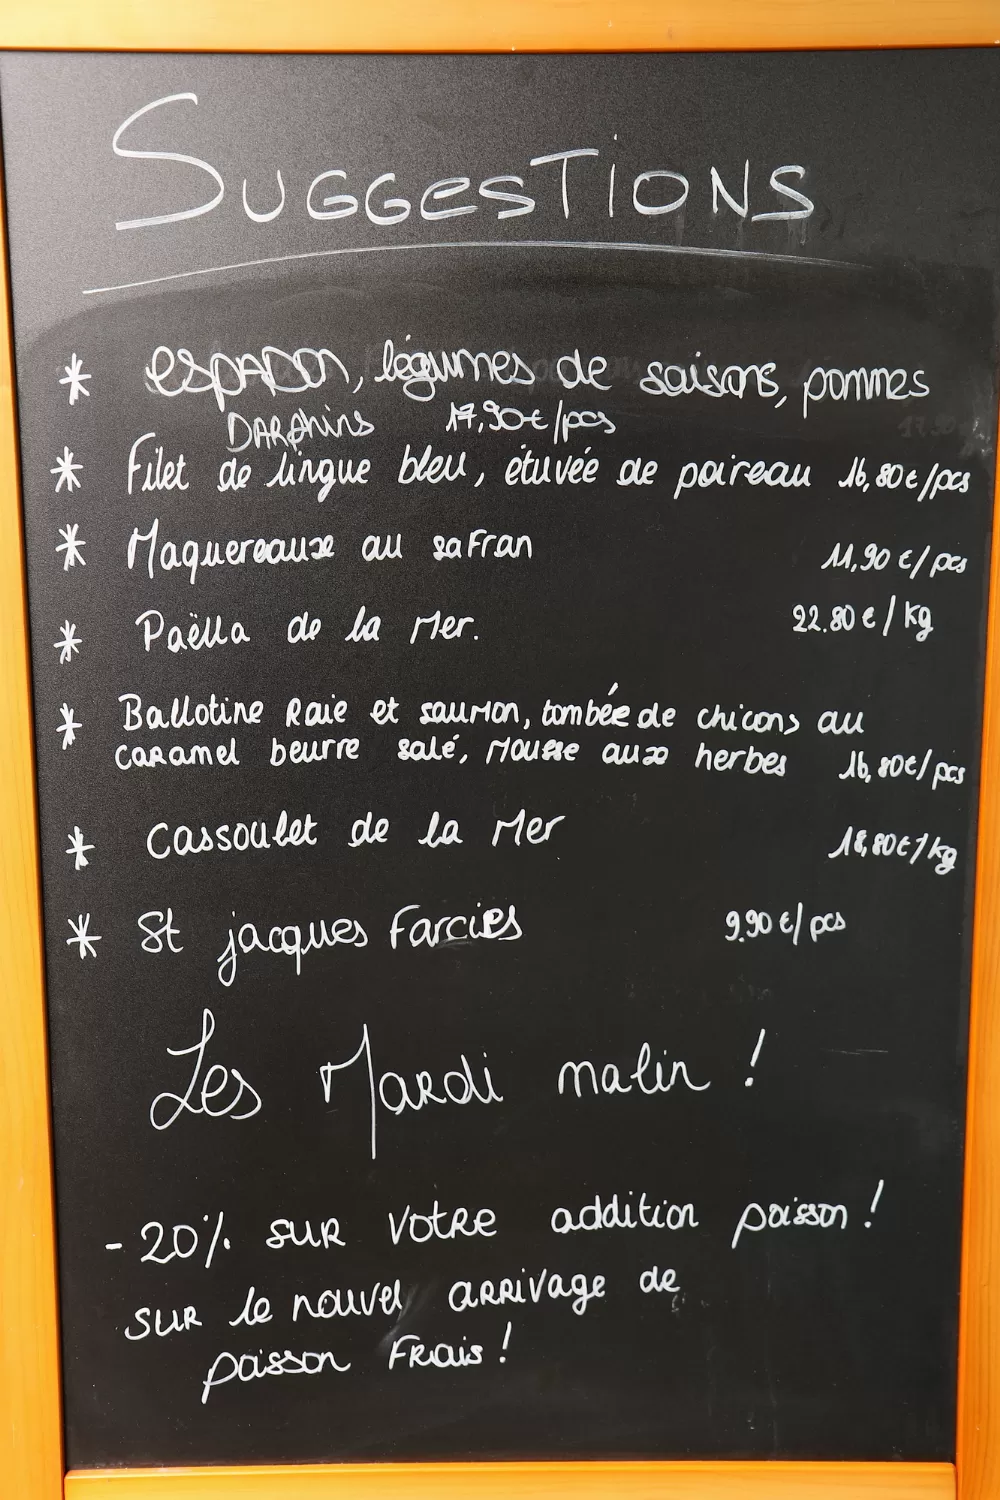 SUGGESTIONS
* ESPADON, légumes de saisons, pommes
DARPhins 17,90€/pcs
* Filet de lingue bleu, étuvée de poireau 16,80€/pcs
* Maquereaux au safran 11,90 €/pcs
* Paëlla de la Mer. 22.80 €/kg
* Ballotine Raie et saumon, tombée de chicons au
caramel beurre salé, mousse aux herbes 16,80€/pcs
* Cassoulet de la Mer 18,80€/kg
* St jacques Farcies 9.90 €/pcs
Les Mardi matin !
- 20% sur votre addition poisson !
sur le nouvel arrivage de
poisson Frais !